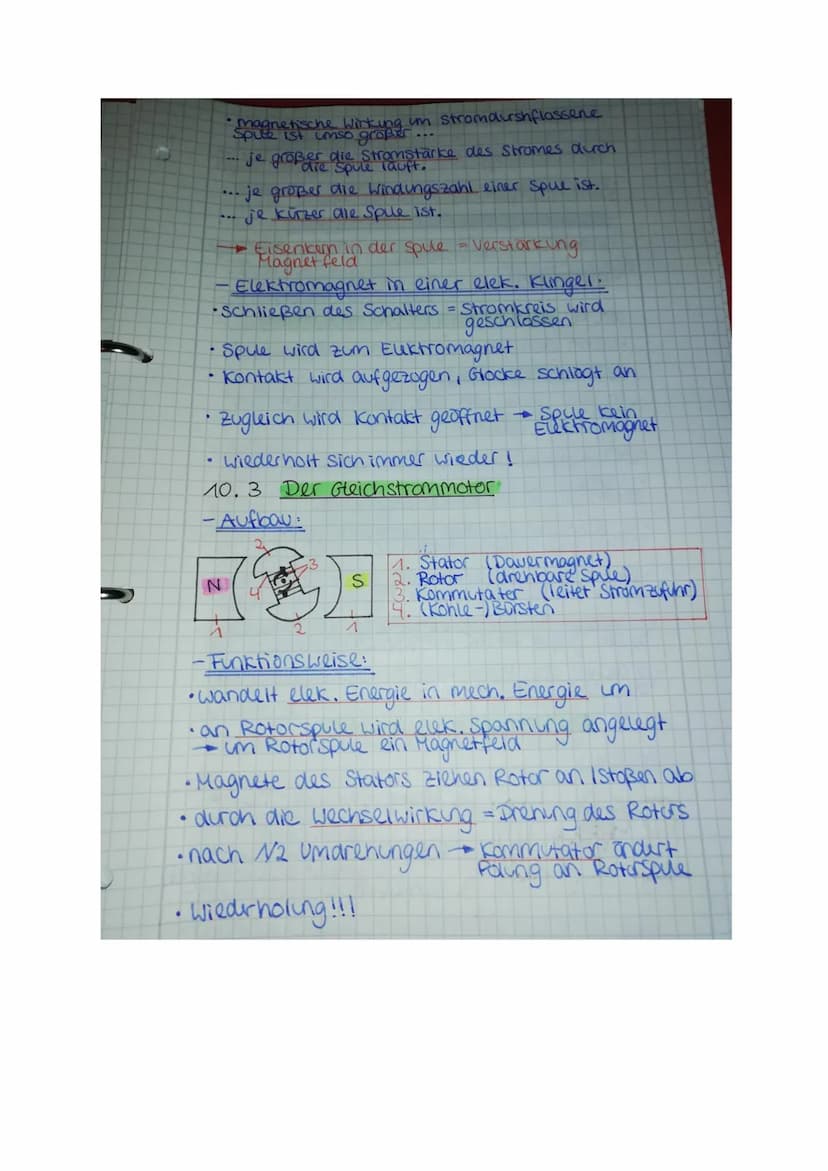 • magnetische Wirkung um stromdurshflossene
Spule ist umso größer ...
... je größer die Stromstärke des Stromes durch
die Spule läuft.
... je größer die Windungszahl einer Spule ist.
... je kürzer die Spule ist.
→ Eisenkern in der Spule = Verstärkung
Magnetfeld
- Elektromagnet in einer elek. Klingel:
• Schließen des Schalters = Stromkreis wird
geschlossen
• Spule wird zum Elektromagnet
• Kontakt wird aufgezogen, Glocke schlägt an
• Zugleich wird Kontakt geöffnet → Spule kein
Elektromagnet
• wiederholt sich immer wieder!
10.3 Der Gleichstrommotor
- Aufbau:
2
3
N
4
S
1
2
1
1. Stator (Dauermagnet)
2. Rotor (drehbare Spule)
3. Kommutater (leitet Stromzufuhr)
4. (Kohle-)Bürsten
- Funktionsweise:
• wandelt elek. Energie in mech. Energie um
• an Rotorspule wird elek. Spannung angelegt
→ um Rotorspule ein Magnetfeld
• Magnete des Stators ziehen Rotor an / stoßen ab
• durch die Wechselwirkung = Drehung des Rotors
• nach 1/2 Umdrehungen → Kommutator ändert
Polung an Rotorspule
• Wiederholung!!!